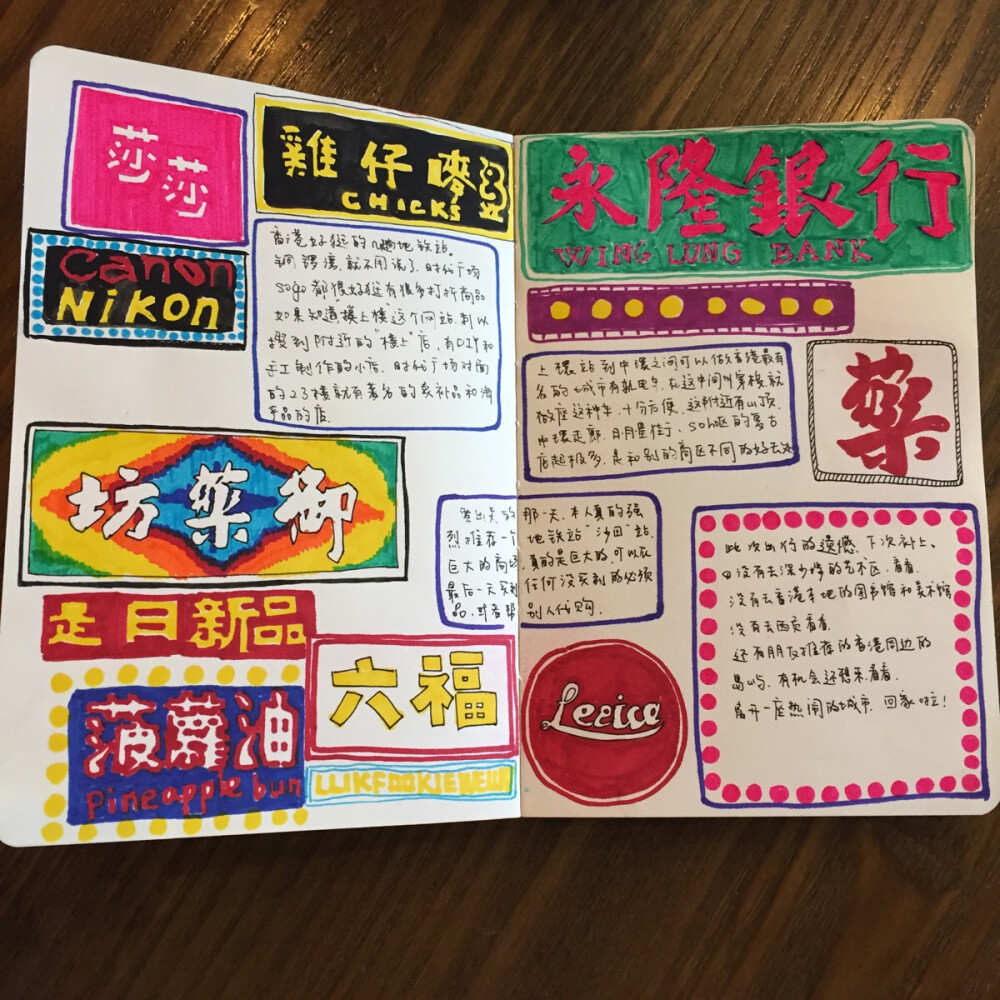 莎莎
雞仔嘜
CHICKS
Canon
Nikon
香港好逛的几个地铁站。
铜锣湾就不用说了,时代广场
sogo都很好逛有很多打折商品
如果知道摸上楼这个网站,到以
搜到附近的"楼上"店,有DIY和
手工制作的小店,时代广场对面
的223楼就有著名的卖补品和海
平品的店.
坊藥御
是日新品
菠蘿油
pineapple bun
六福
LUKFOOKJEWELL
永隆銀行
WING LUNG BANK
上環站到中環之间可以做香港最有
名的城市有轨电车.在这中间穿梭就
做座这种车,十分方便.这附近有山顶,
中環走廊,日月星街,soho区的蒙古
店超极多.是和别的商区不同的好去处
藥
那一天,本人真的强
烈推荐一个 地铁站"沙田"站,
巨大的商场 真的是巨大的,可以在
最后一天买到 任何没买到的必须
品,或者帮 别人代购.
Leeica
此次出行的遗憾.下次补上,
没有去深水埗的艺术区,看看.
没有去香港本地的图书馆和美术馆
没有去西贡看看.
还有朋友推荐的香港周边的
岛屿.有机会还想来看看.
离开一座热闹的城市.回家啦!